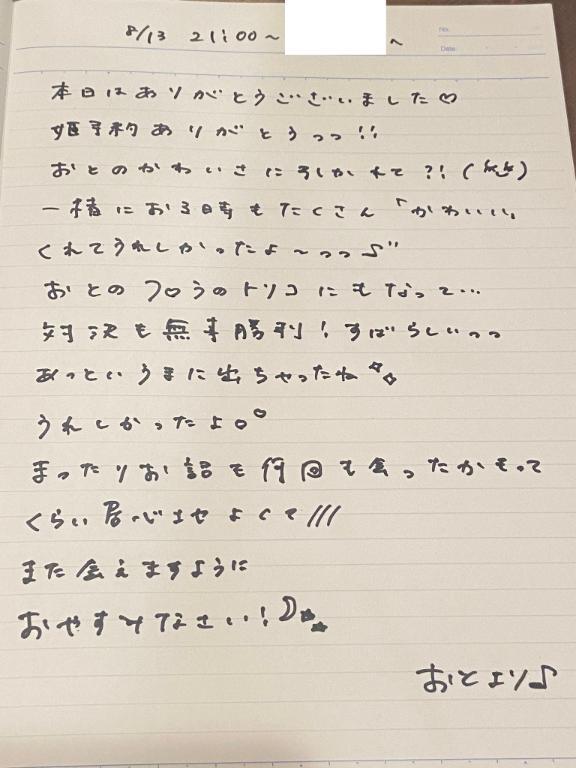 8/13 21:00〜 〜
No.
Date
本日はありがとうございました♡
姫予約ありがとうっっ!!
おとのかわいさに引かれて?!(
一緒にお風呂時もたくさん「かわいい」
くれてうれしかったよ〜っっ♪"
おとのフロうのトリコにもなって…
対決も無事勝利!すばらしいっっ
あっというまに出ちゃったね
うれしかったよ○♡
まったりお話も何回も会ったかもって
くらい居心地よくて///
また会えますように
おやすみなさい!☽★★
おとより♪